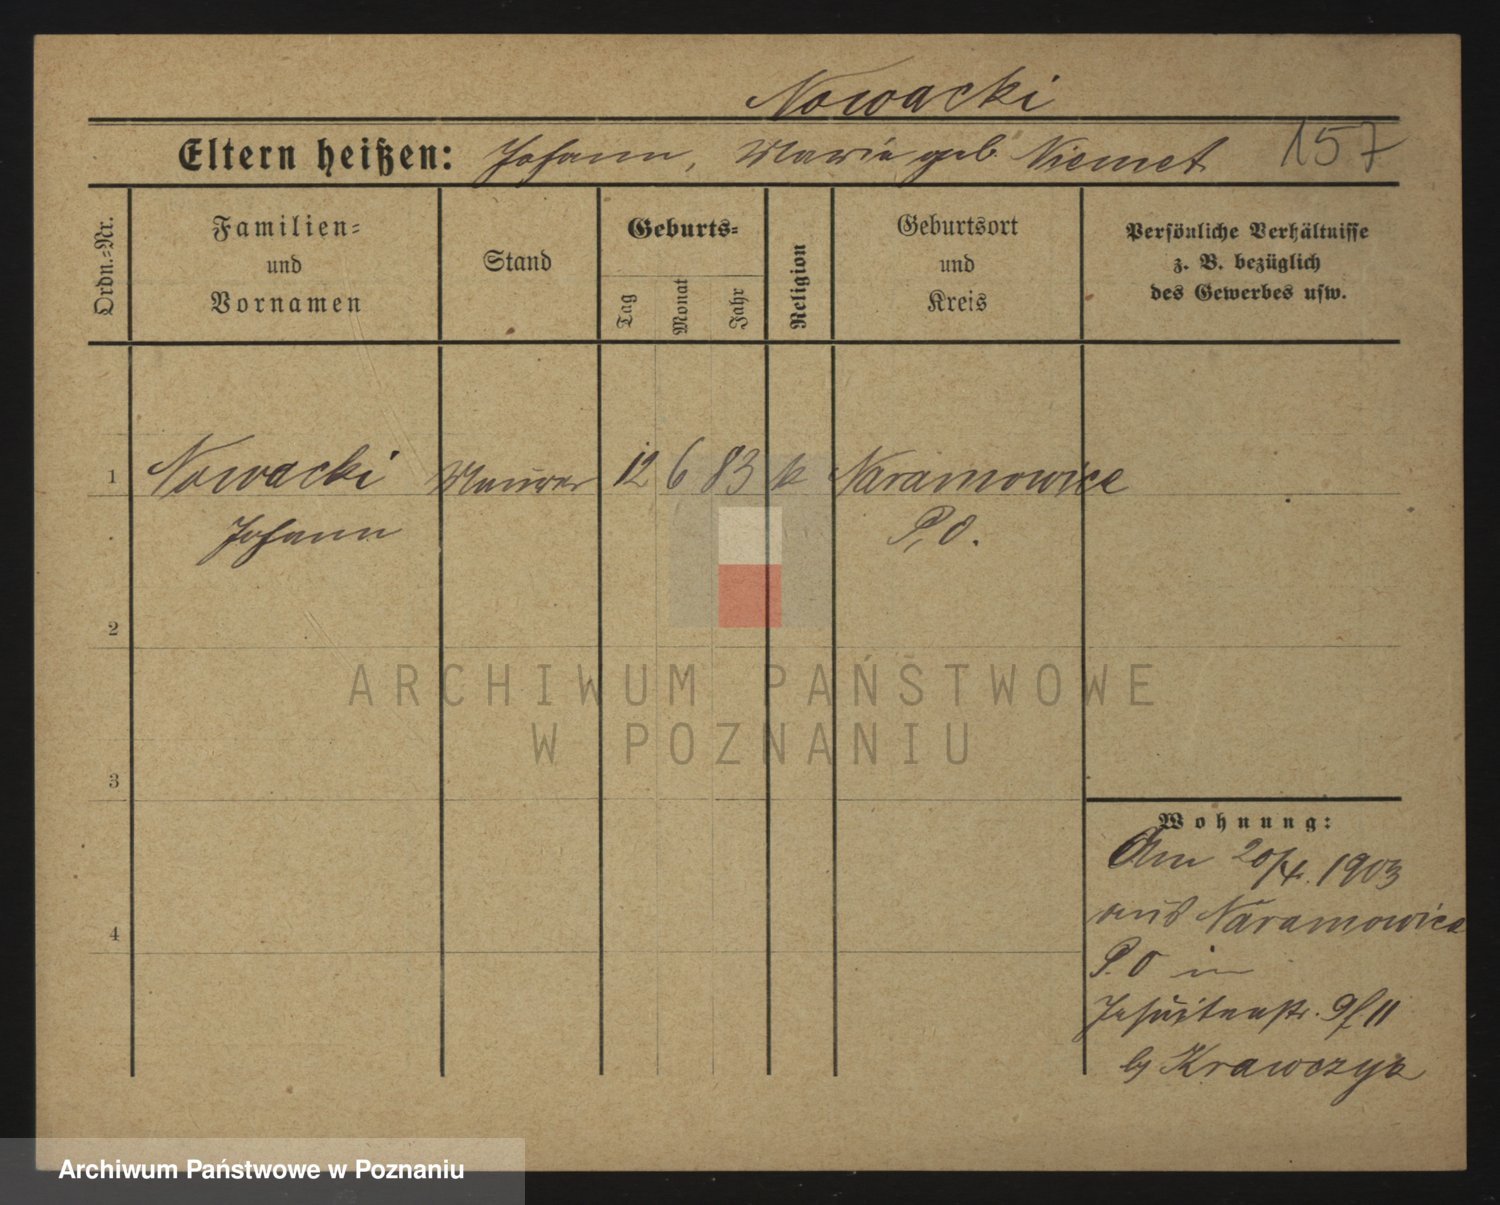 Nowacki
Eltern heißen: Johann, Marie geb. Niemet 157
Ordn.=Nr.
Familien=
und
Vornamen
Stand
Geburts=
Tag
Monat
Jahr
Religion
Geburtsort
und
Kreis
Persönliche Verhältnisse
z. B. bezüglich
des Gewerbes usw.
1 Nowacki Maurer 12 6 83 k Naramowice
Johann P. O.
2
3
4
Wohnung:
Am 20/4. 1903
aus Naramowice
P. O in
Jesuitenstr. 9/11
by Krawczyk
ARCHIWUM PAŃSTWOWE
W POZNANIU
Archiwum Państwowe w Poznaniu